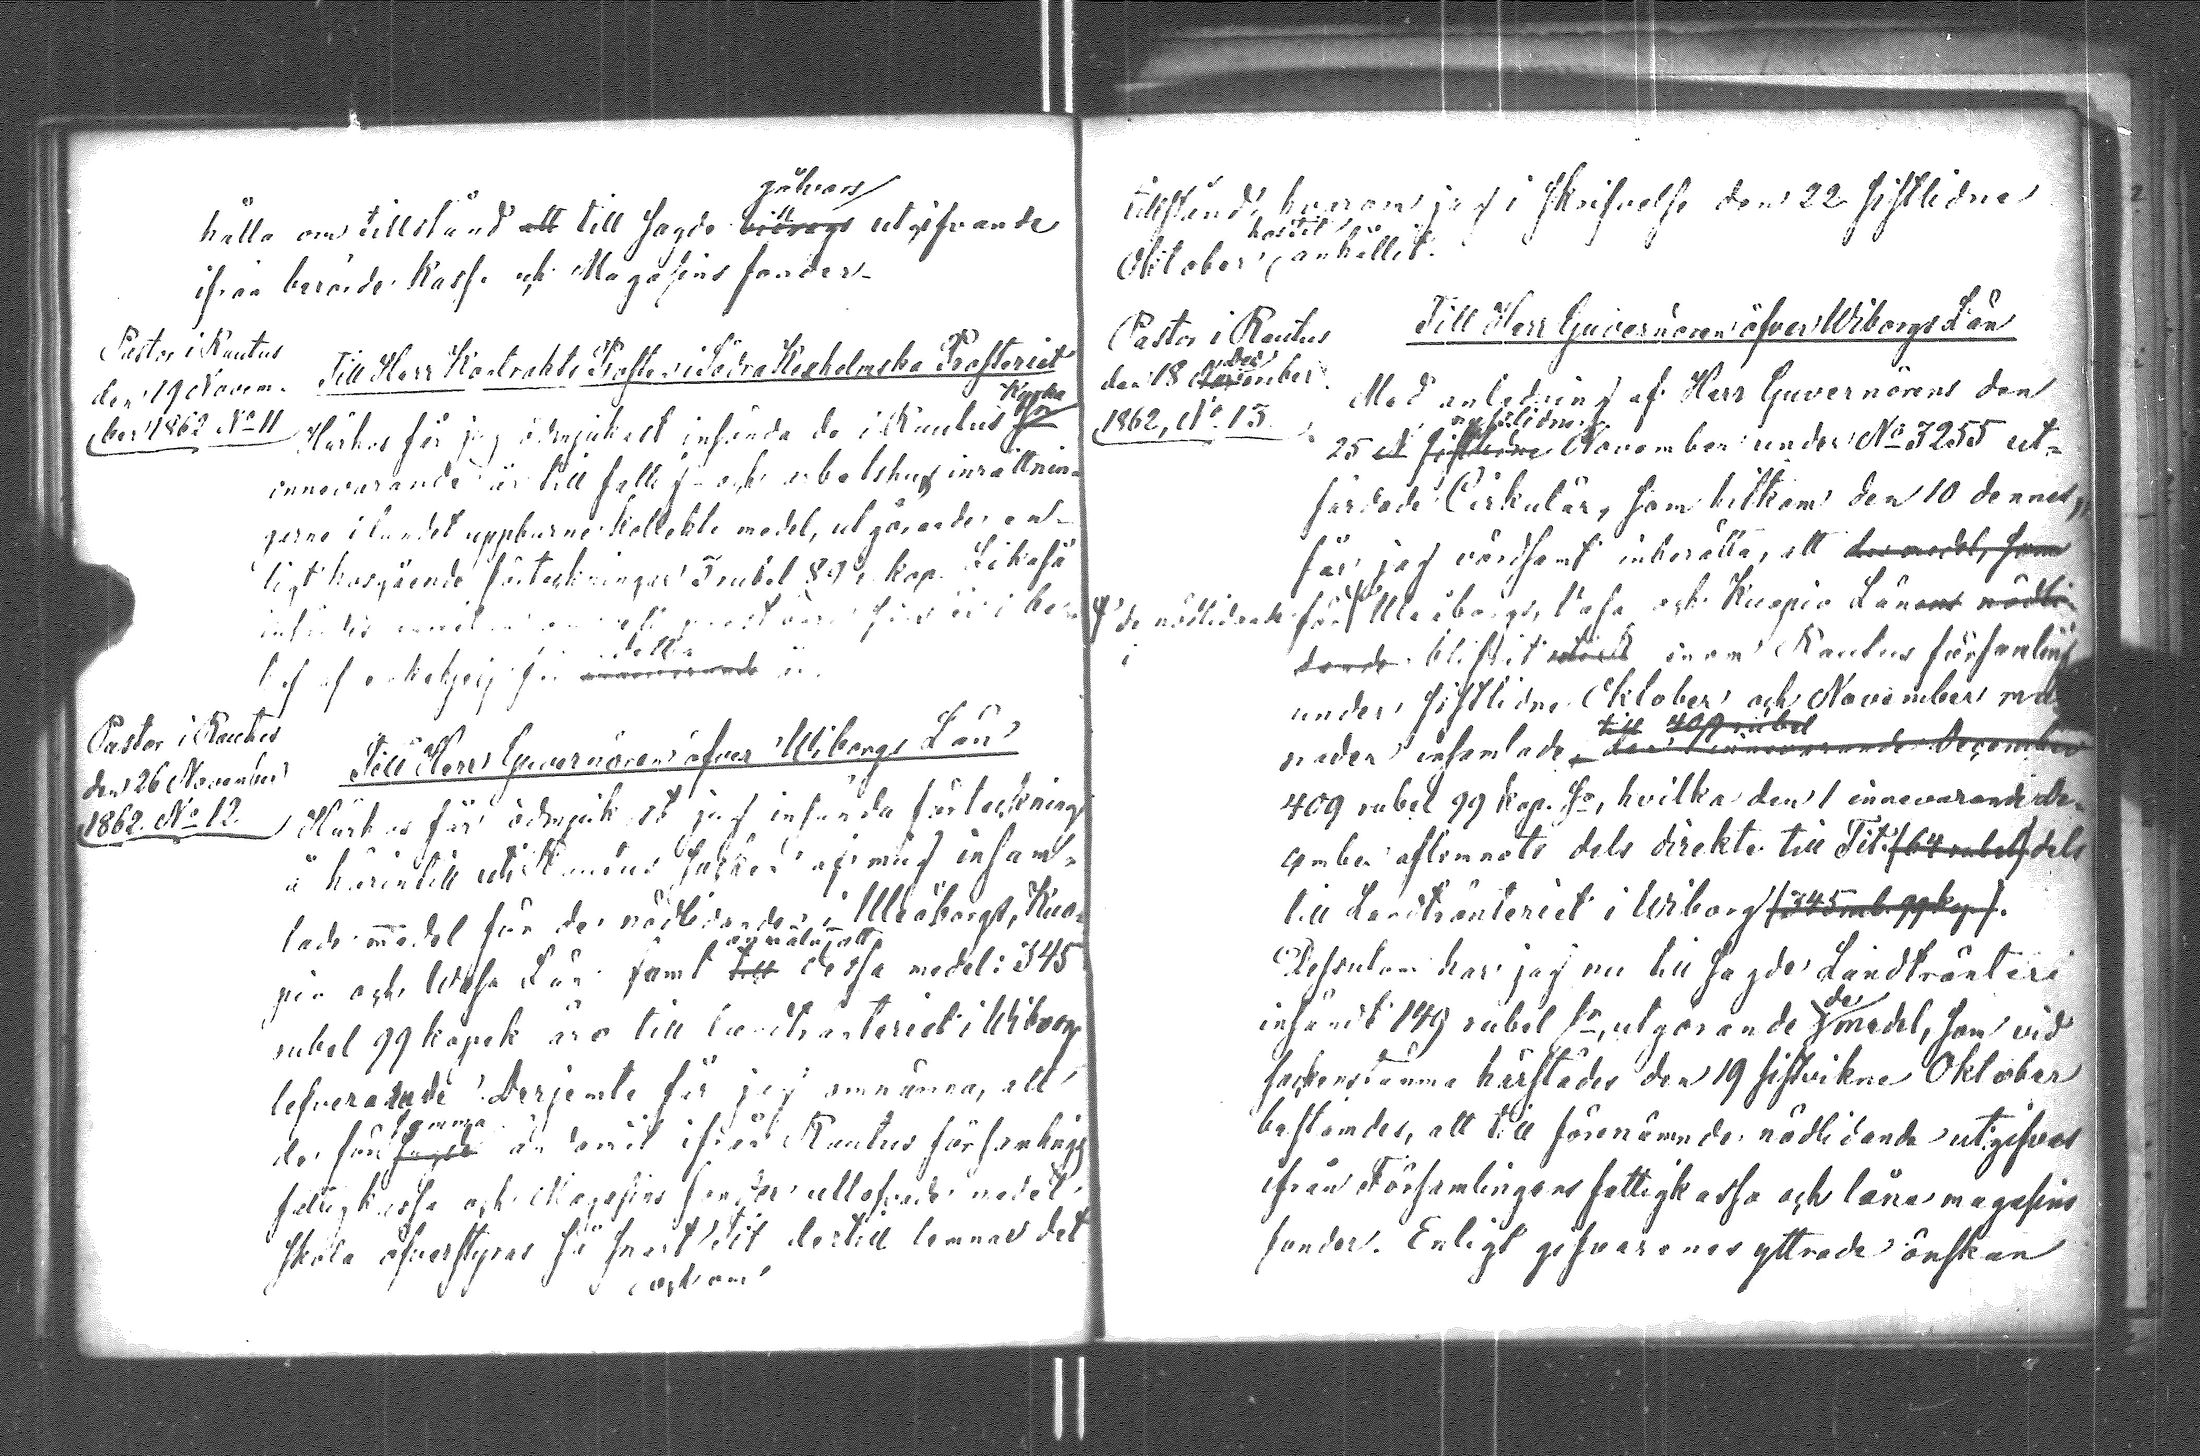 gåfvors
hålla om tillstånd att till sagde bidrags utgifvande
ifrån berörde Kassa och Magasins fonder.
Pastor i Rautus
den 19 Novem-
ber 1862 No 11
Till Herr Kontrakts Prosten i Södra Kexholmska Prosteriet
Härhos får jag ödmjukast insända de i Rautus
innevarande år till fattig- och arbetshus inrättnin-
garne i landet uppburne kollekte medel, utgörande en-
ligt hosgående förteckningar 3 rubel 89 kop. Likaså
detta
innevarande år.
Pastor i Rautus
den 26 November
1862. No 12.
Till Herr Guvernören öfver Wiborgs Län
Härhos får ödmjukast jag insända förteckning
å härintill utaf mig insam-
lade medel för de nödlidande i Uleåborgs, Kuo-
pio och Wasa Län samt att dessa medel: 345
rubel 99 kopek äro till landtränteriet i Wiborg
lefvererade. Derjemte får jag omnämna, att
samma
de för sagde ändamål ifrån Rautus församlings
fattigkassa och Magasins fonder utlofvade medel
skola öfverstyras så snart Tit dertill lemnar det
och om
tillstånd, hvarom jag i skrifvelse den 22 sistlidne
Oktober anhållit.
Pastor i Rautus
Dec
den 18 November
1862, No 13.
Till Herr Guvernören öfver Wiborgs Län
Med anledning af Herr Guvernörens den
25 sistlidne November under No 3255 ut-
färdade Cirkulär, som hitkom den 10 dennes,
får jag vördsamt inberätta, att de medel, som
de nödlidande
i
för Uleåborgs, Wasa och Kuopio Länens nödli-
dande blifvit inom Rautus församling
under sistlidne Oktober och November må-
till 409 rubel
nader insamlade, den 1 innevarande December
409 rubel 99 kop. Sr, hvilka den 1 innevarande De-
cember aflemnats dels direkte till Tit. (64 rubel) dels
till Landtränteriet i Wiborg (345 rub. 99 kop.).
Dessutom har jag nu till sagde Landtränteri
de
insändt 149 rubel Sr, utgörande medel, som vid
sockenstämma härstädes den 19 sistvikne Oktober
bestämdes, att till förenämnde nödlidande utgifvas
ifrån Församlingens fattigkassa och låne magasins
fonder. Enligt gifvarenes yttrade önskan